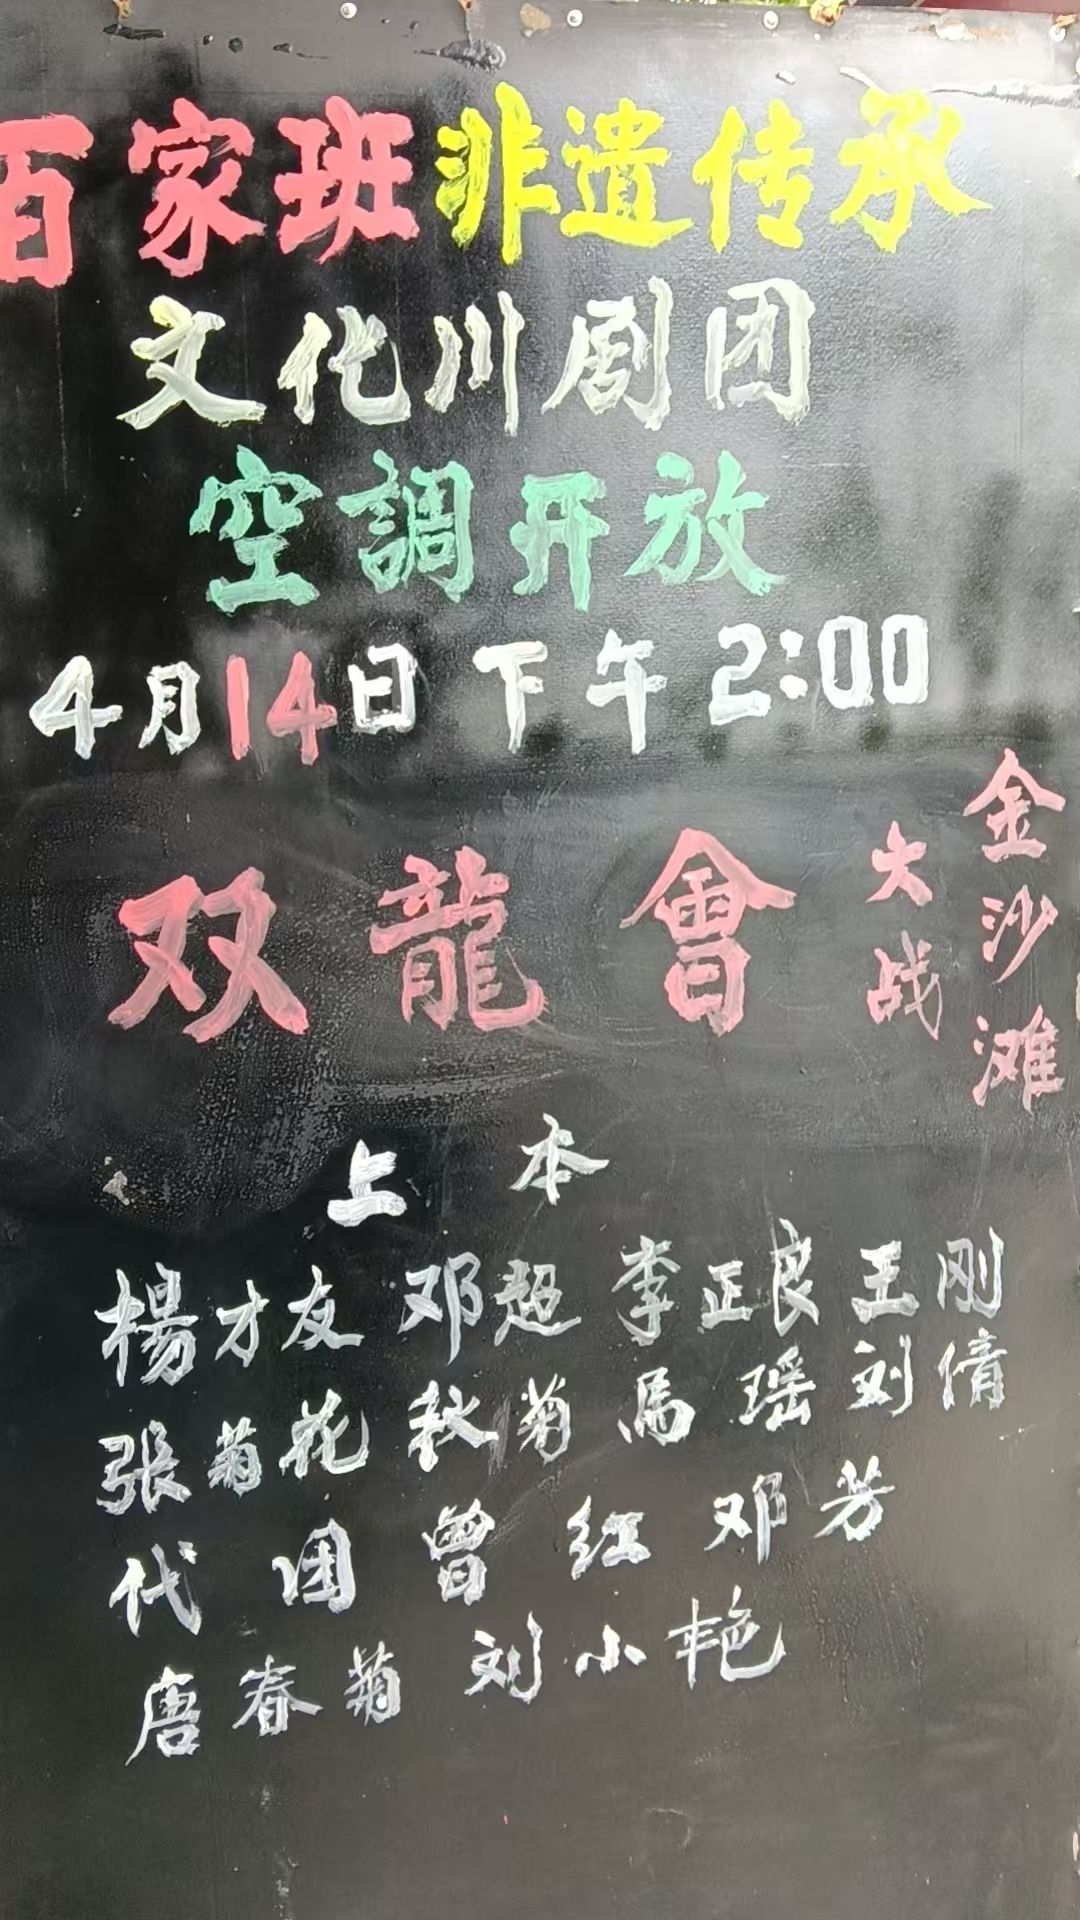 百家班非遗传承
文化川剧团
空調开放
4月14日 下午 2:00
双龍會
大战
金沙滩
上本
楊才友 邓超 李正良 王刚
张菊花 秋菊 馬瑶 刘倩
代团 曾红 邓芳
唐春菊 刘小艳